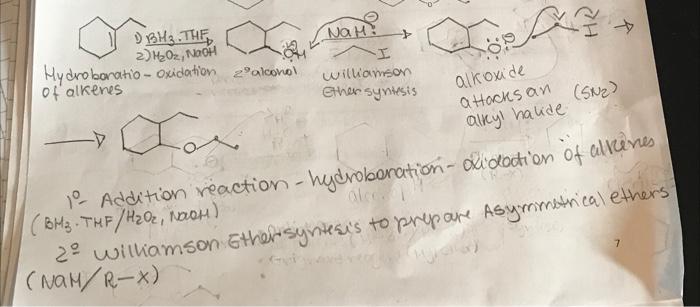 1) BH3·THF
2) H2O2, NaOH
OH
NaH
I
O
I
Hydroboratio-oxidation
of alkenes
2º alcohol
williamson
Ether syntesis
alkoxide
attacks an
alkyl halide
(SN2)
O
1º- Addition reaction - hydroboration-
of alkenes
(BH3·THF/H2O2, NaOH)
2º williamson Ether syntesis to prepare Asymmetrical ethers
(NaH/R-X)
7